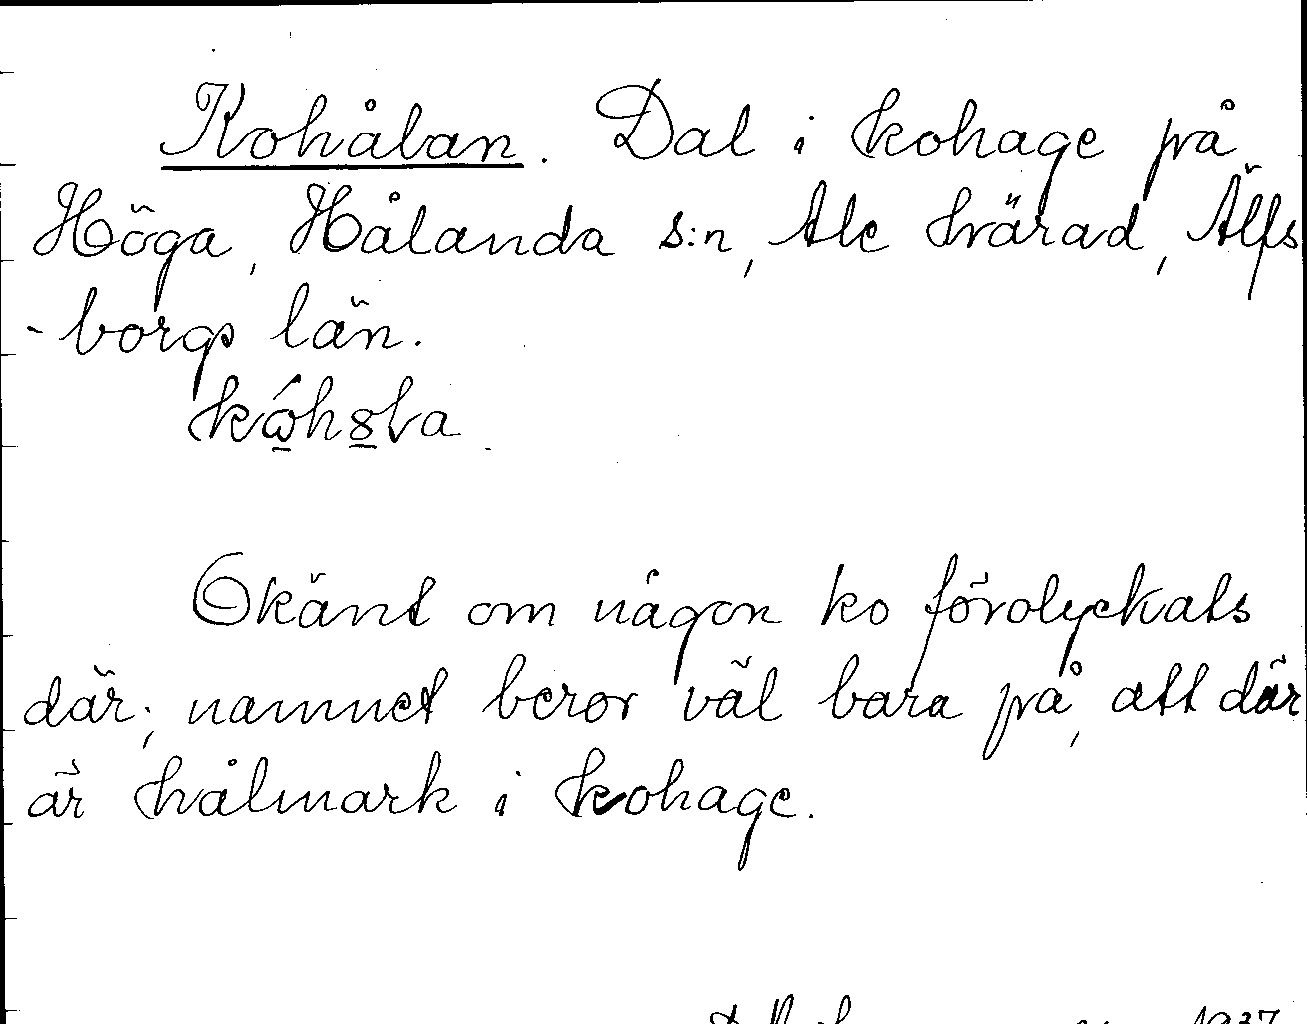 Kohålan. Dal i kohage på
Höga, Hålanda s:n, Ale härad, Älfs
-borgs län.
Okänt om någon ko förolyckats
där; namnet beror väl bara på, att där
är hålmark i kohage.
1937